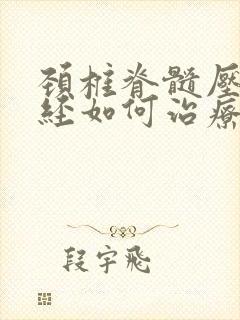 頚椎脊髓壓
經如何治療
段宇飛